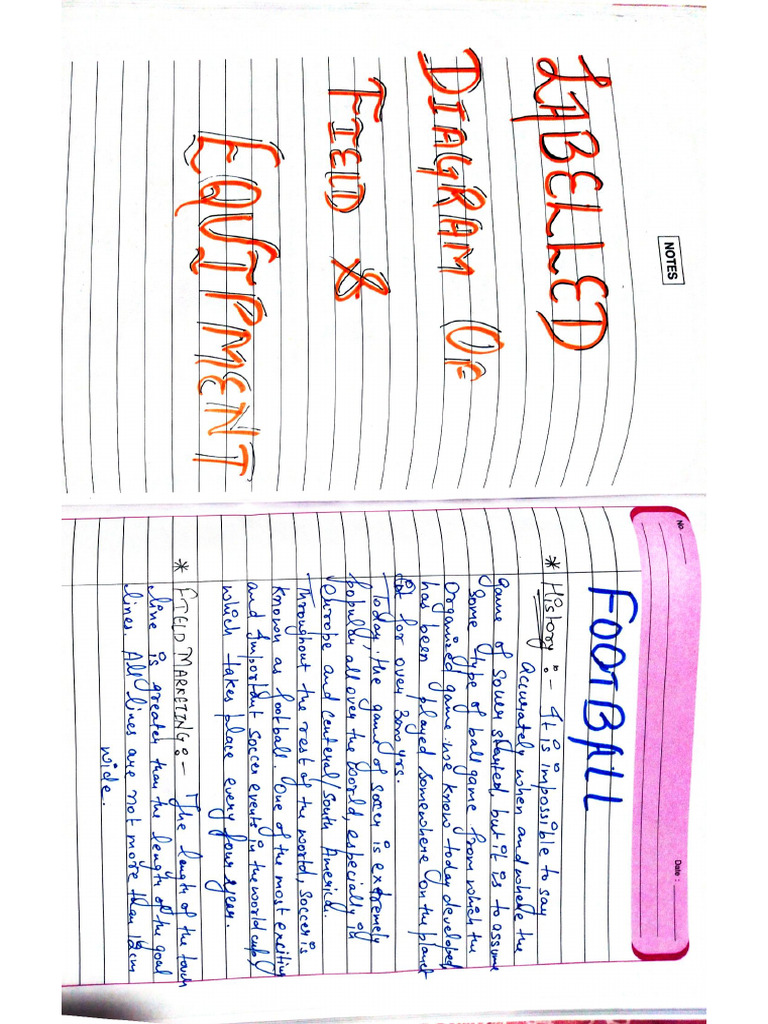 NOTES
LABELLED
DIAGRAM OF
FIELD &
EQUIPMENT
No
Date :
FOOTBALL
* History :- It is impossible to say
accurately when and where the
game of soccer started, but it is to assume
some type of ball game from which the
organized game we know today developed
has been played somewhere on the planet
for over 3000 yrs.
Today, the game of soccer is extremely
popular all over the world, especially in
europe and centeral/South America.
Throughout the rest of the world, soccer is
known as football. One of the most exciting
and Important soccer events in the world cup,
which takes place every four year.
* FIELD MARKETING :- The length of the touch
line is greater than the length of the goal
lines. All lines are not more than 12cm
wide.